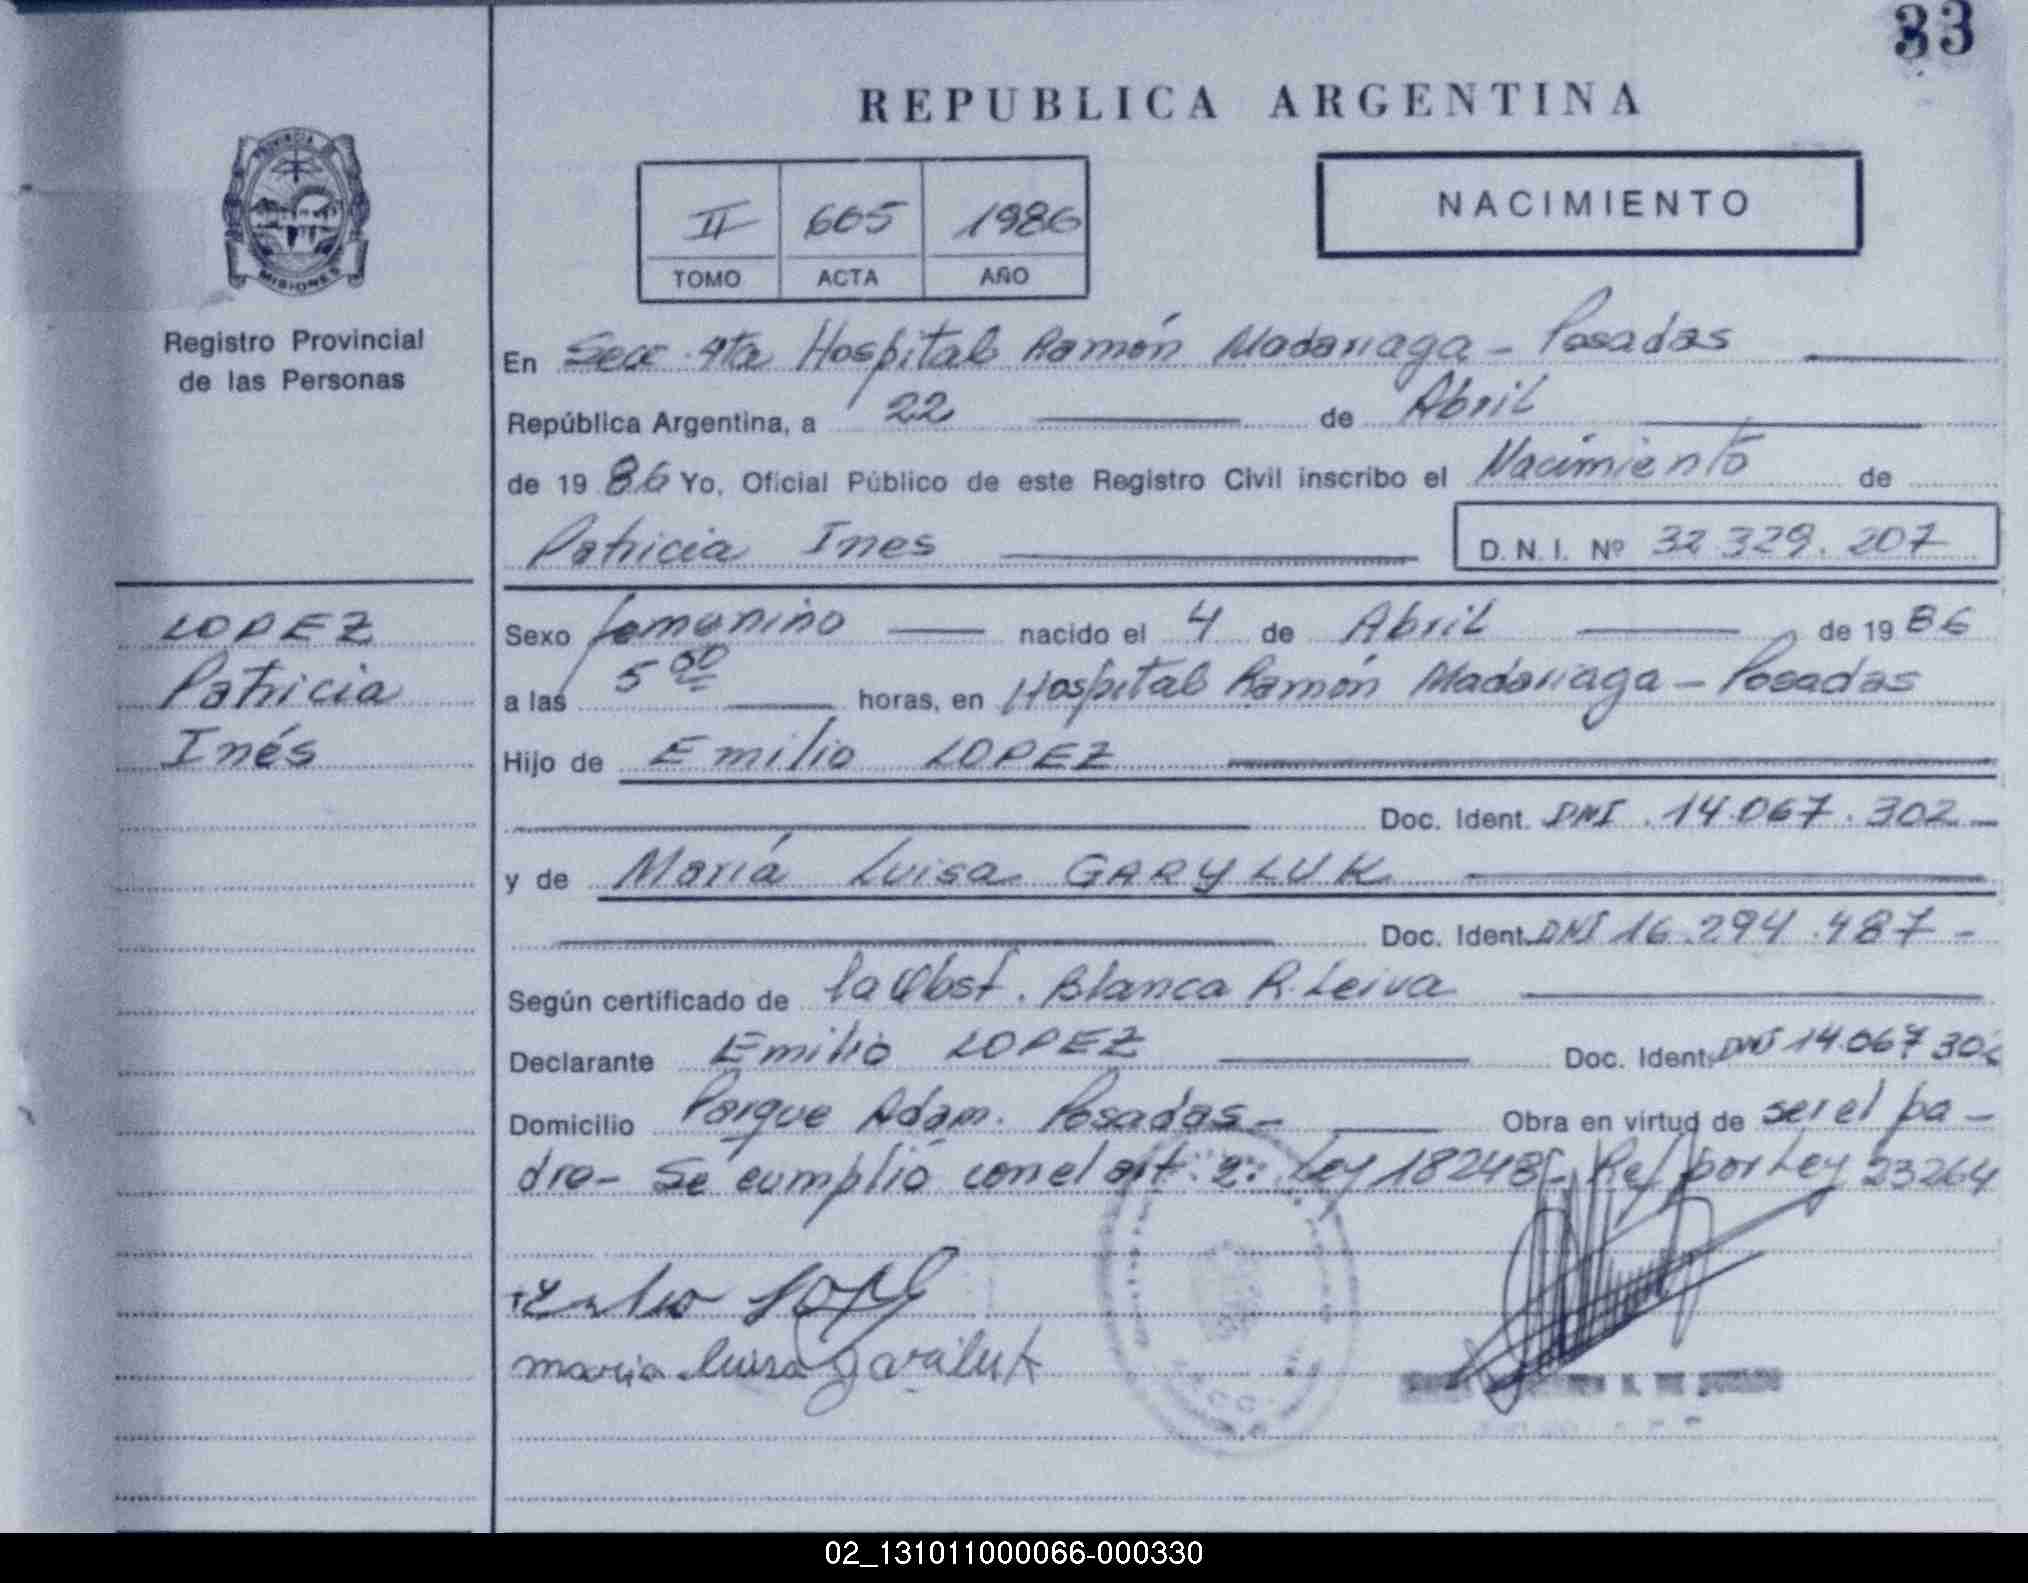 33
REPUBLICA ARGENTINA
PROVINCIA
MISIONES
Registro Provincial
de las Personas
II 605 1986
TOMO ACTA AÑO
NACIMIENTO
En Secc. 4ta Hospital Ramón Madariaga - Posadas
República Argentina, a 22 de Abril
de 1986 Yo, Oficial Público de este Registro Civil inscribo el Nacimiento de
Patricia Ines D.N.I. Nº 32.329.207
LOPEZ
Patricia
Inés
Sexo femenino nacido el 4 de Abril de 1986
a las 5 00 horas, en Hospital Ramón Madariaga - Posadas
Hijo de Emilio LOPEZ
Doc. Ident. DNI. 14.067.302
y de María Luisa GARYLUK
Doc. Ident. DNI 16.294.487 -
Según certificado de la Obst. Blanca R. Leiva
Declarante Emilio LOPEZ Doc. Ident. DNI 14.067.302
Domicilio Parque Adam. Posadas - Obra en virtud de ser el pa-
dre - Se cumplió con el art. 2: Ley 18248 - Ref por Ley 23264
Emilio Lopez
maria luisa garaluk
02_131011000066-000330